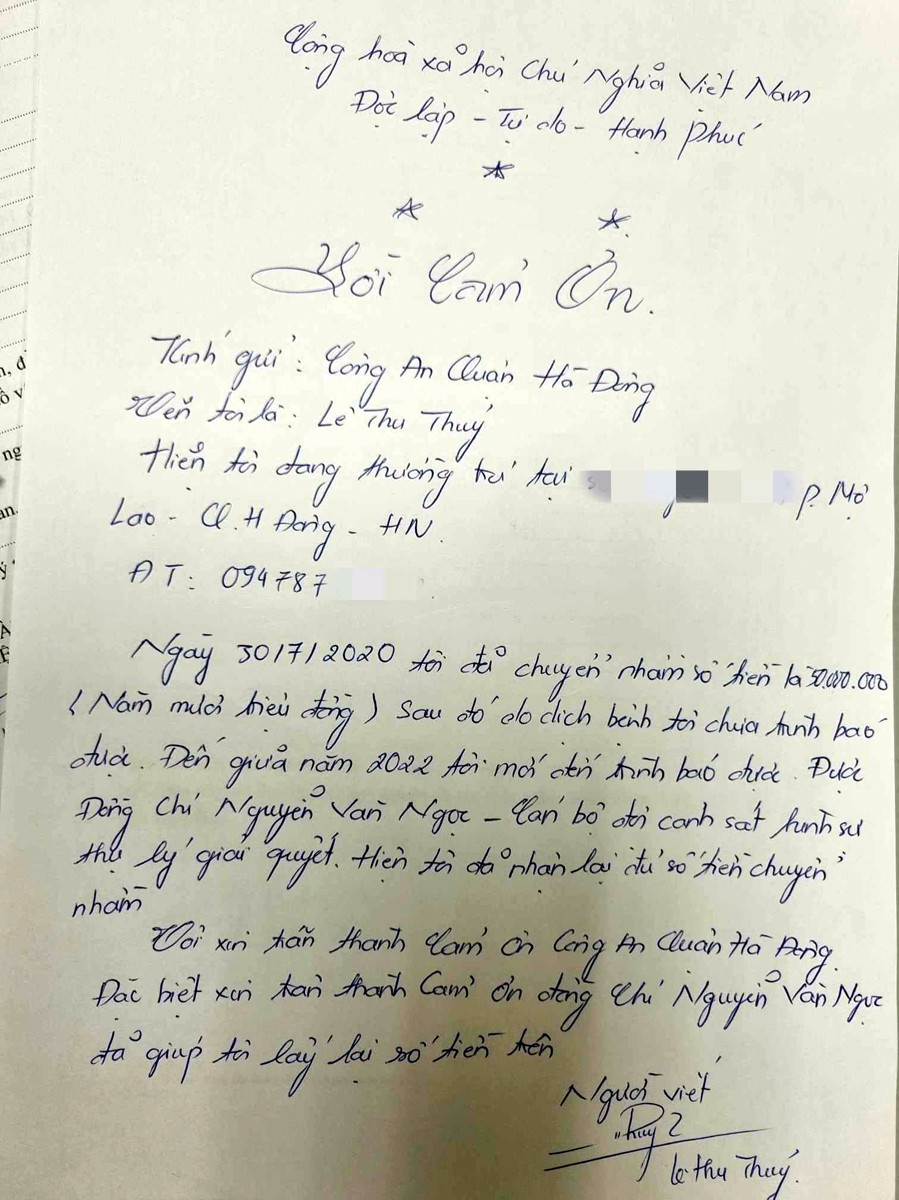 Cộng hoà xã hội Chủ Nghĩa Việt Nam
Độc lập - Tự do - Hạnh Phúc
Lời Cảm Ơn.
Kính gửi: Công An Quận Hà Đông
Tên tôi là: Lê Thu Thuỷ
Hiện tôi đang thường trú tại P. Mộ
Lao - Q. H Đông - HN.
ĐT: 094787
Ngày 30/7/2020 tôi đã chuyển nhầm số tiền là 50.000.000
(Năm mươi triệu đồng) Sau đó do dịch bệnh tôi chưa trình báo
được. Đến giữa năm 2022 tôi mới đến trình báo được. Được
Đồng Chí Nguyễn Văn Ngọc - Cán bộ đội cảnh sát hình sự
thụ lý giải quyết. Hiện tôi đã nhận lại đủ số tiền chuyển
nhầm
Tôi xin trân thành Cảm ơn Công An Quận Hà Đông.
Đặc biệt xin trân thành Cảm ơn đồng Chí Nguyễn Văn Ngọc
đã giúp tôi lấy lại số tiền trên
Người viết
Thuỷ
Lê Thu Thuỷ